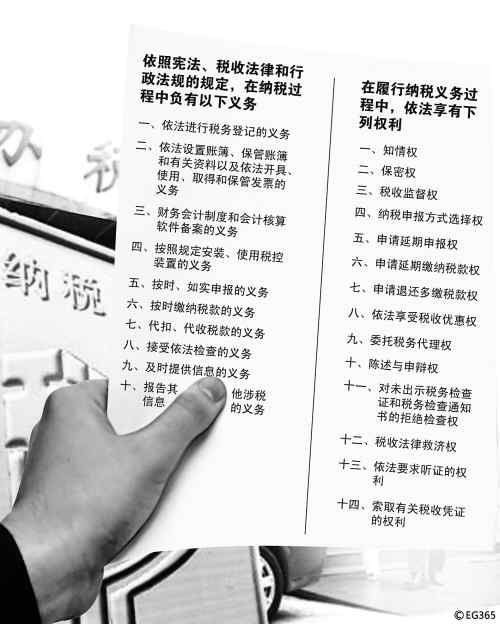 依照宪法、税收法律和行
政法规的规定，在纳税过
程中负有以下义务
一、依法进行税务登记的义务
二、依法设置账簿、保管账簿
和有关资料以及依法开具、
使用、取得和保管发票的
义务
三、财务会计制度和会计核算
软件备案的义务
四、按照规定安装、使用税控
装置的义务
五、按时、如实申报的义务
六、按时缴纳税款的义务
七、代扣、代收税款的义务
八、接受依法检查的义务
九、及时提供信息的义务
十、报告其他涉税
信息的义务
在履行纳税义务过
程中，依法享有下
列权利
一、知情权
二、保密权
三、税收监督权
四、纳税申报方式选择权
五、申请延期申报权
六、申请延期缴纳税款权
七、申请退还多缴税款权
八、依法享受税收优惠权
九、委托税务代理权
十、陈述与申辩权
十一、对未出示税务检查
证和税务检查通知
书的拒绝检查权
十二、税收法律救济权
十三、依法要求听证的权
利
十四、索取有关税收凭证
的权利
办税
纳税
©EG365